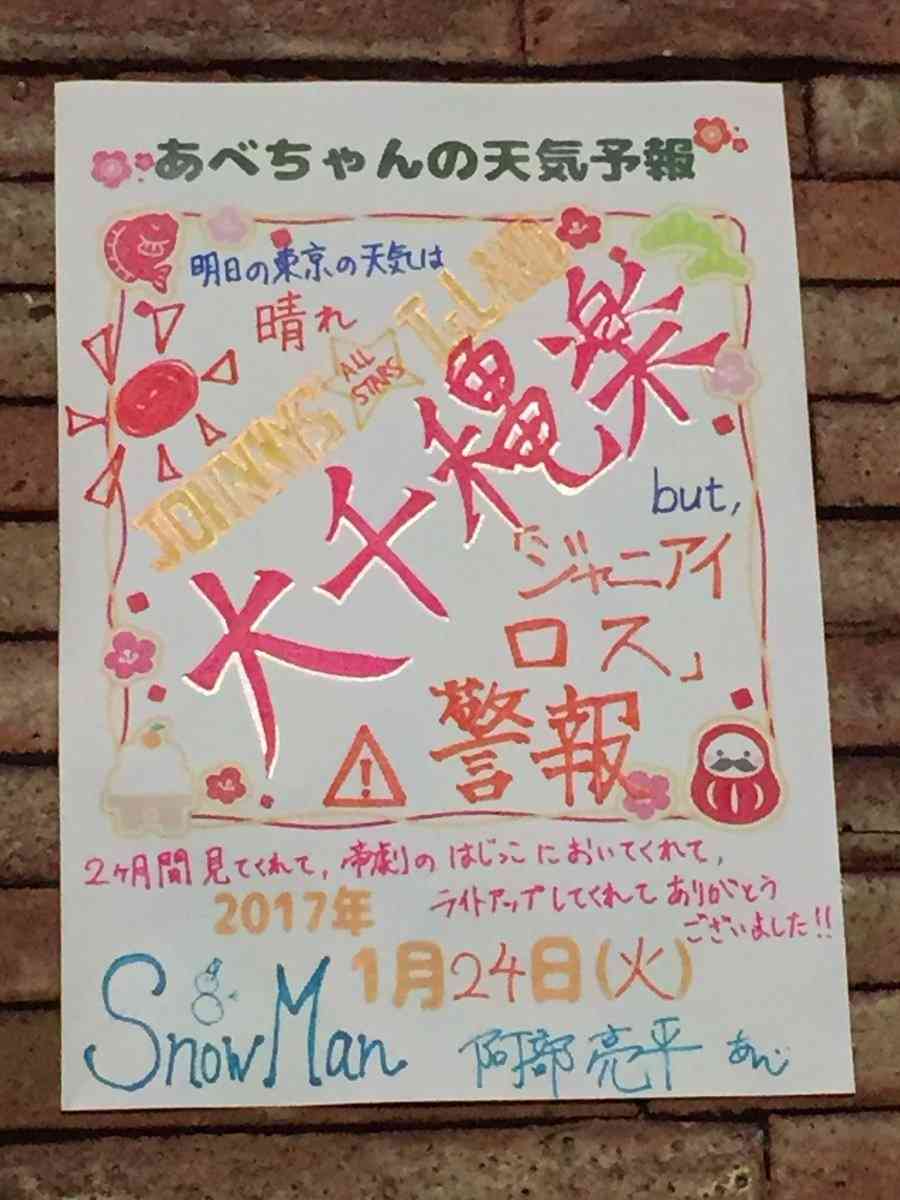 あべちゃんの天気予報
明日の東京の天気は
晴れ
JOHNNYS' ALL STARS IsLAND
大千穐楽
but,
「ジャニアイ
ロス」
警報
2ヶ月間見てくれて,帝劇のはじっこにおいてくれて,
ライトアップしてくれてありがとう
ございました!!
2017年
1月24日(火)
Snow Man
阿部亮平